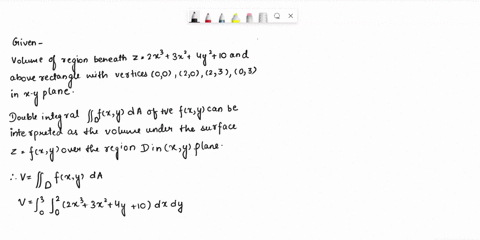 Given-
Volume of region beneath z = 2x³+3x²+4y²+10 and
above rectangle with vertices (0,0), (2,0), (2,3), (0,3)
in x-y plane.
Double integral ∬_D f(x,y) dA of +ve f(x,y) can be
interpreted as the volume under the surface
z = f(x,y) over the region D in (x,y) plane.
∴ V = ∬_D f(x,y) dA
V = ∫₀³ ∫₀² (2x³+3x²+4y+10) dx dy